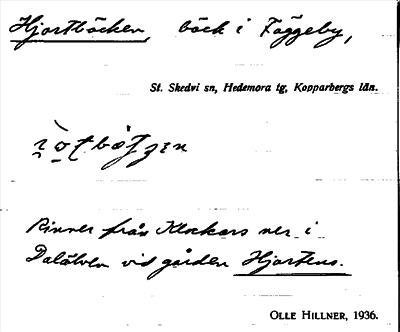 Hjortbäcken, bäck i Fäggeby,
St. Skedvi sn, Hedemora tg, Kopparbergs län.
Rinner från Klockars ner i
Dalälven vid gården Hjortens.
OLLE HILLNER, 1936.